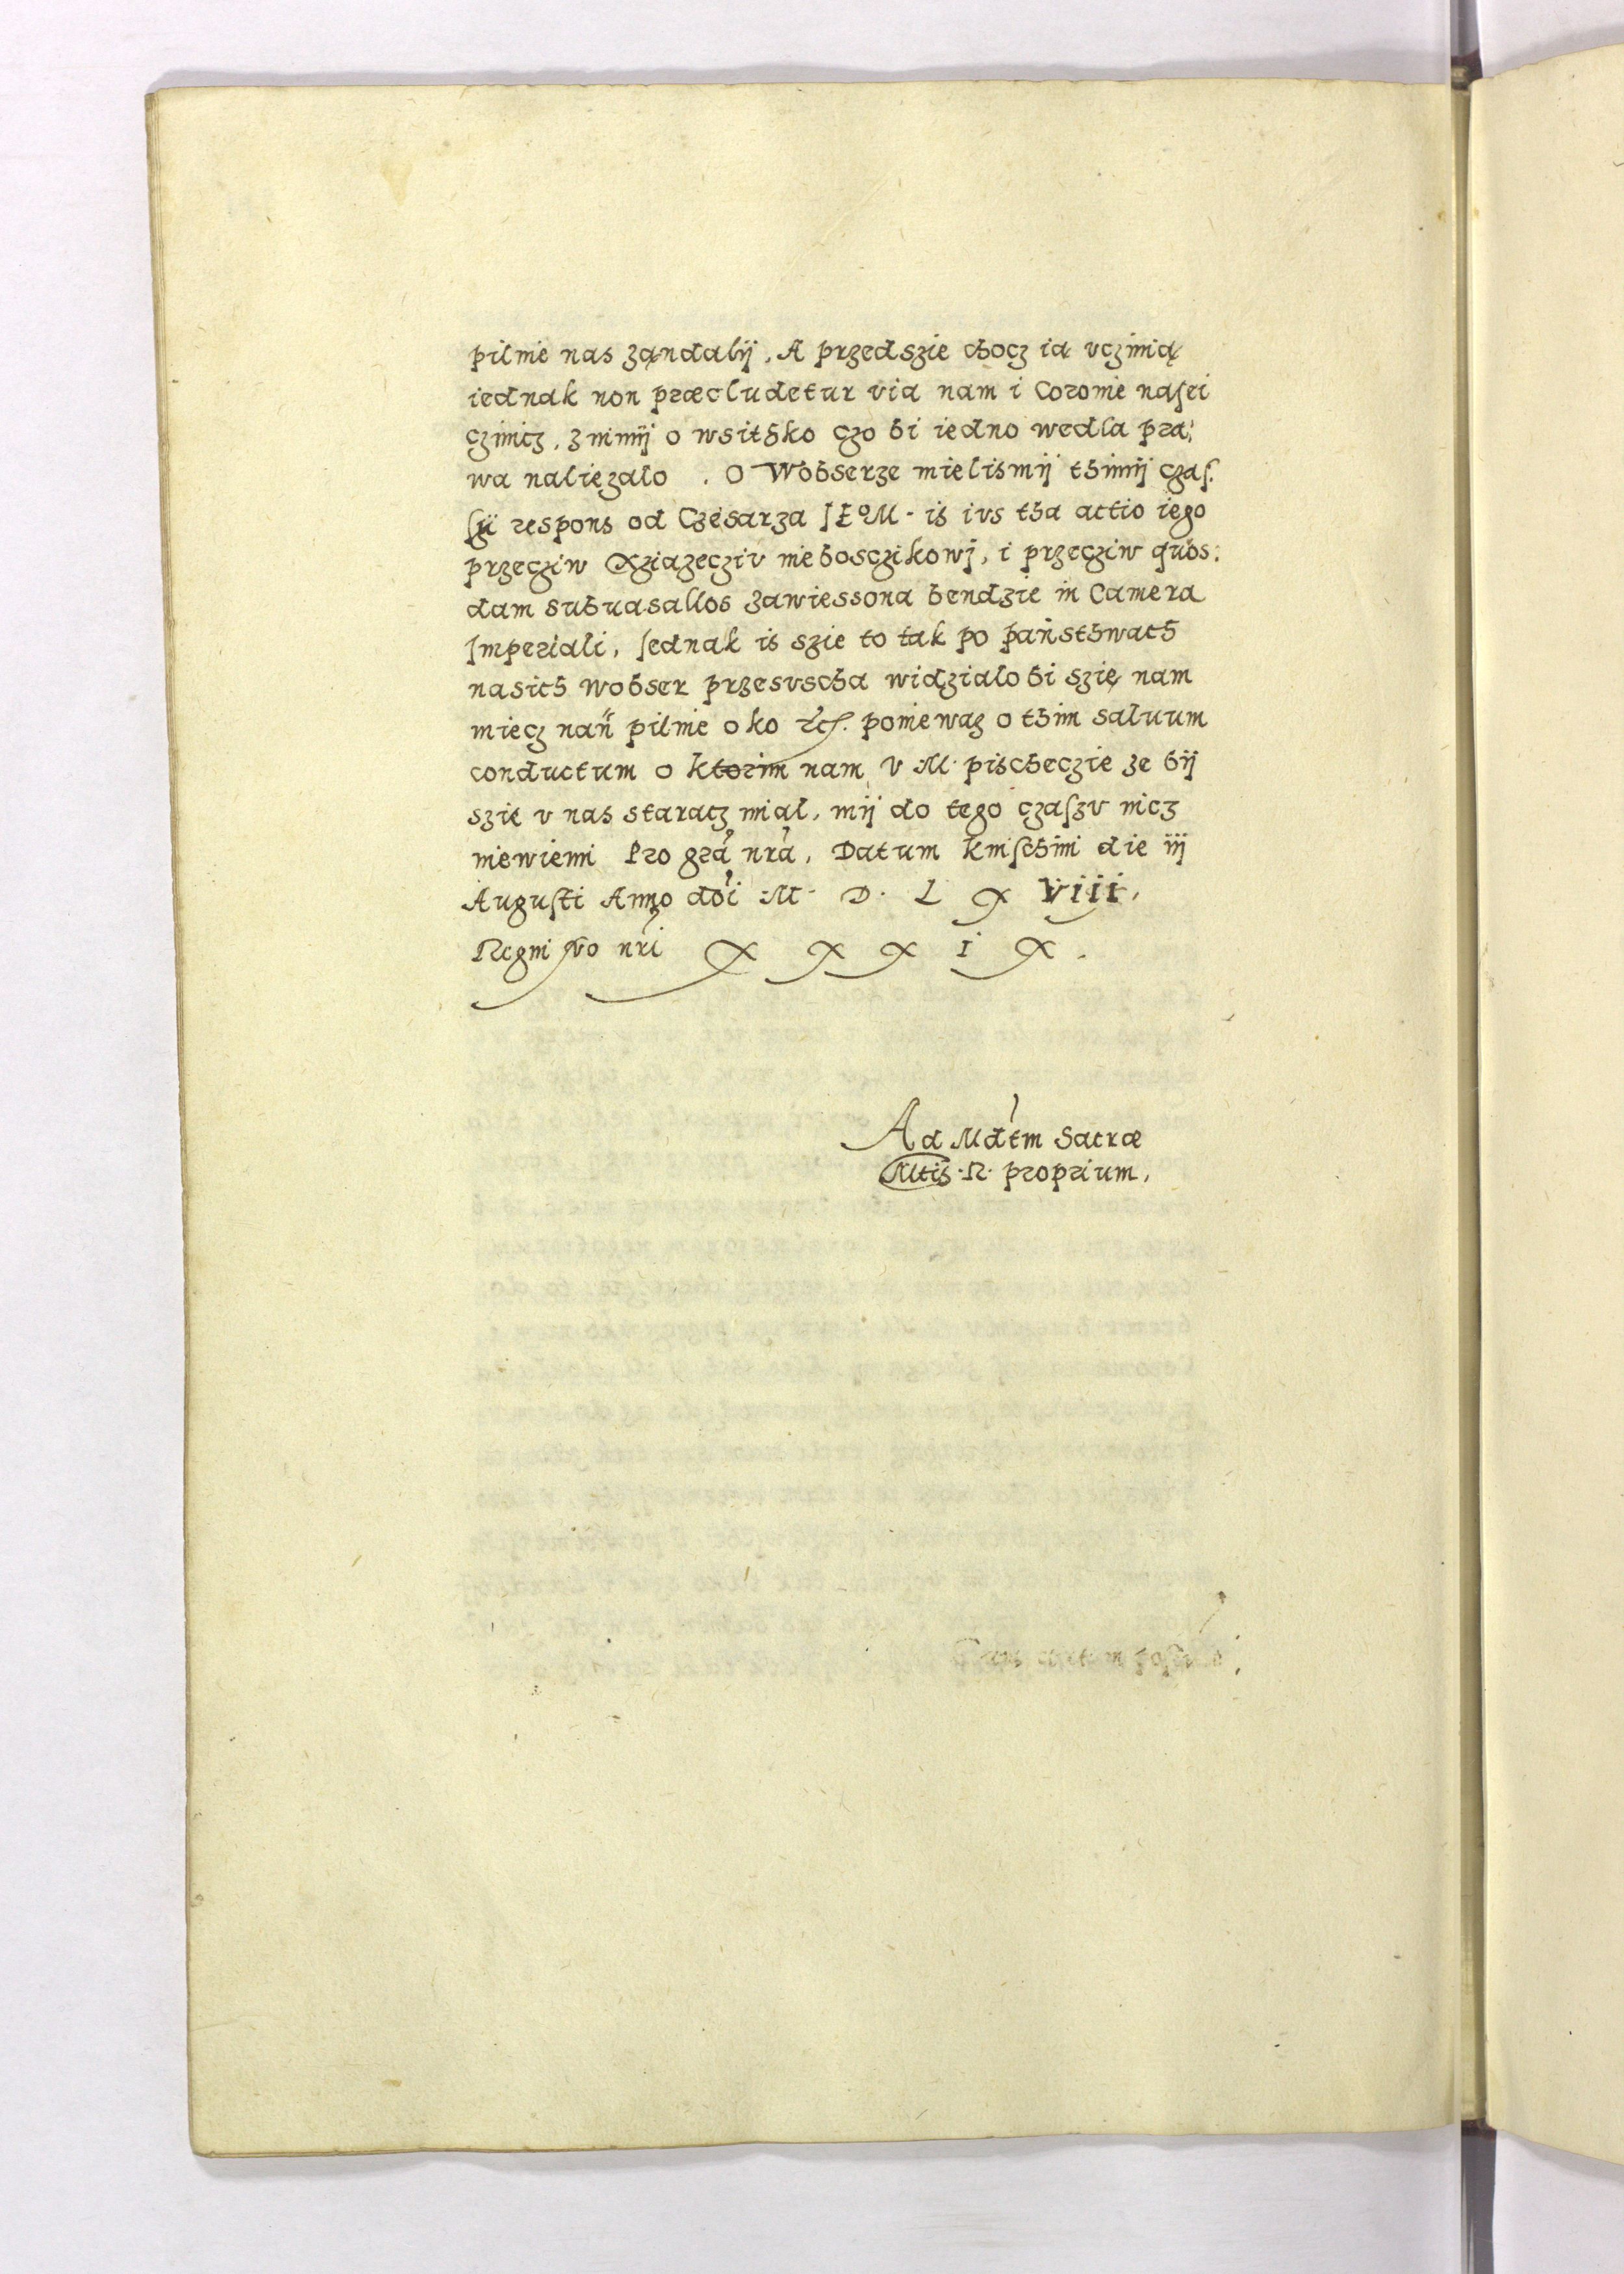 pilnie nas ządali̇j. A przedszie chocz ią vczinią
iednak non præcludetur via nam i Coronie naſei
czinicz, z nimij o wsithko czo bi iedno wedla pra:
wa naliezalo. O Wobserze mielismij thimij czaſ:
ſij respons od Czesarza IEoM. is ivs tha actio iego
przecziw Xziazecziv nieboscżikowi, i przecziw quos:
dam subuasallos zawiessona bendzie in Camera
Imperiali, Iednak is szie to tak po państhwach
nasich Wobser przesuscha widzialo bi szię nam
miecz nań pilnie oko etc. poniewaz o thim saluum
conductum o ktorim nam V.M. pischeczie ze bij
szie v nas staracz mial, mij do tego czaſzv nicz
niewiemi Pro gra nra, Datum Kniſchini die iij
Auguſti Anno doi M. D. L X Viii.
Regni vo nri X X X I X.
Ad Mdtm Sacræ
Mtis R. proprium.